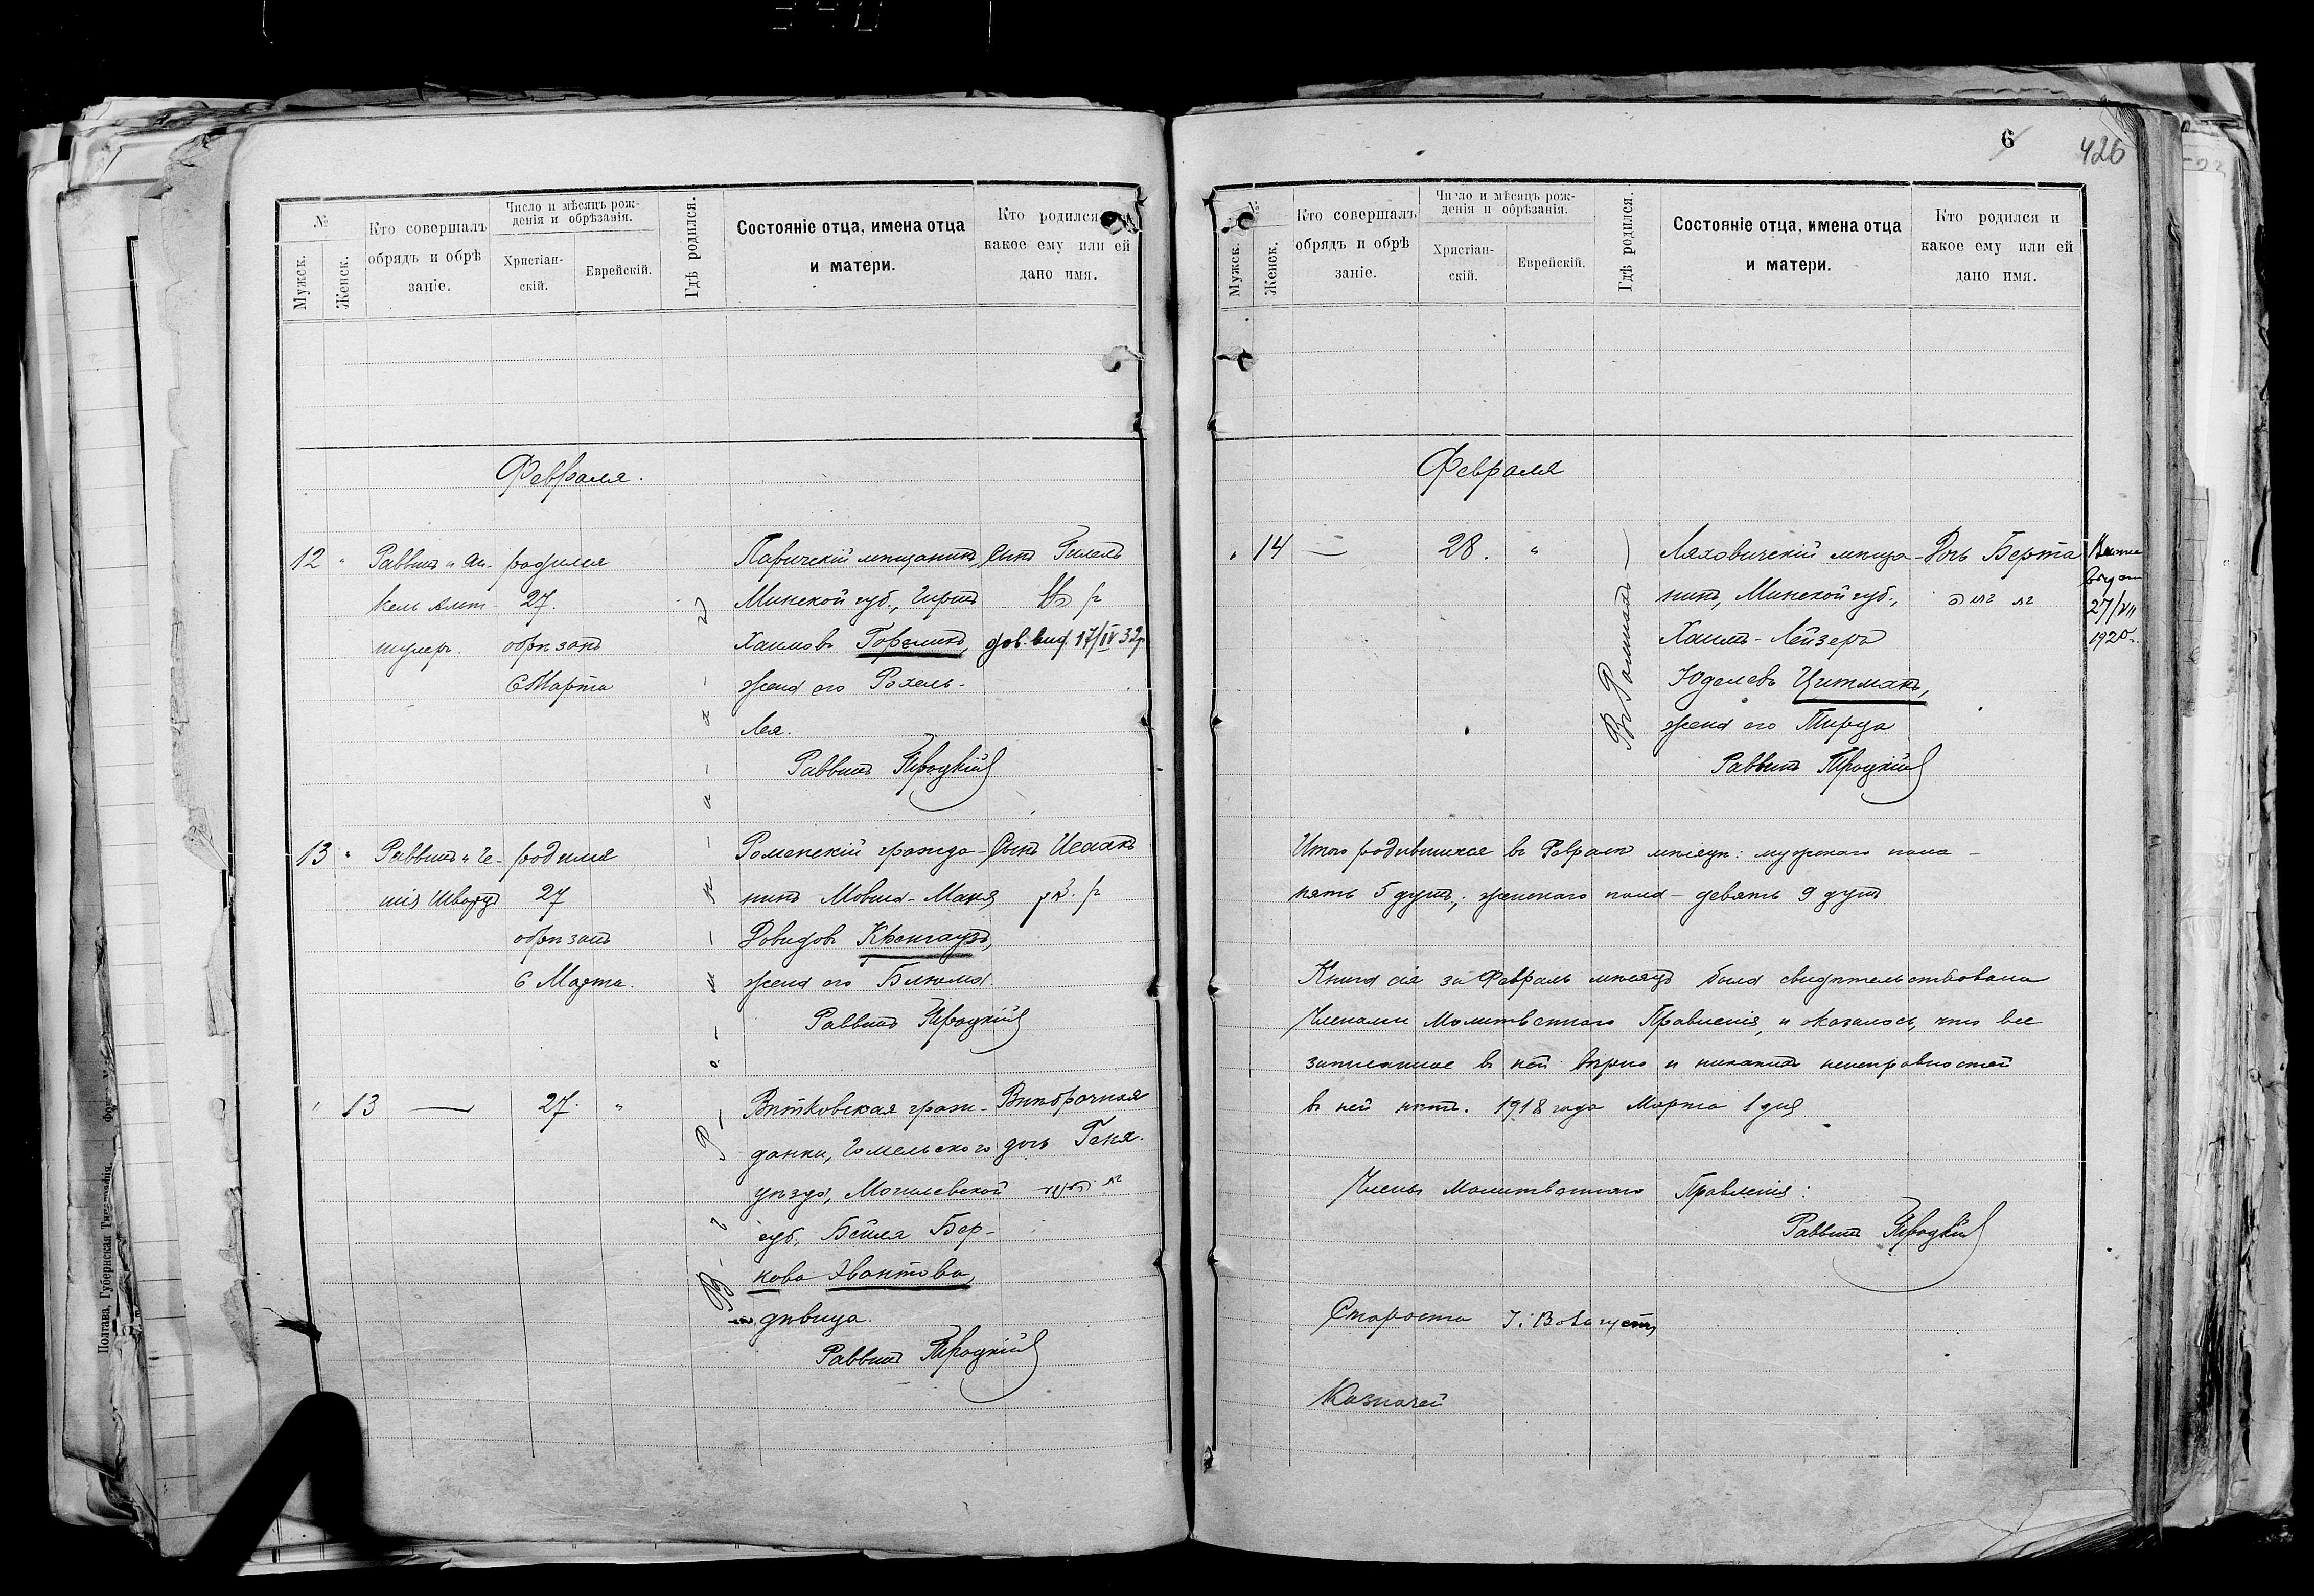 №
Мужск.
Женск.
Кто совершалъ
обрядъ и обрѣ
заніе.
Число и мѣсяцъ рож-
денія и обрѣзанія.
Христіан-
скій.
Еврейскій.
Гдѣ родился.
Состояніе отца, имена отца
и матери.
Кто родился
какое ему или ей
дано имя.
Февраля.
12 " Раввинъ и
родился
27.
обрѣзанъ
6 Марта
Паричскій мѣщанинъ
Минской губ., Гиршъ
Хаимовъ Гореликъ,
жена его Рохель-
Лея.
Раввинъ Троцкій
Сынъ Гилель
17/IV 32 г
13 " Раввинъ и
Шварцъ
родился
27
обрѣзанъ
6 Марта.
Роменскій гражда-
нинъ Мовша-Маня
Довидовъ Кренгаузъ,
жена его Блюма
Раввинъ Троцкій
Сынъ Исаакъ
" 13 —
27. "
Вѣтковская граж-
данка, Гомельскаго
уѣзда, Могилевской
губ., Бейля Бер-
кова Хвантова,
дѣвица.
Раввинъ Троцкій
Внѣбрачная
дочь Геня.
В-ъ Р-о-м-н-а-х-ъ
Полтава, Губернская Типографія.
6
426
Мужск.
Женск.
Кто совершалъ
обрядъ и обрѣ
заніе.
Число и мѣсяцъ рож-
денія и обрѣзанія.
Христіан-
скій.
Еврейскій.
Гдѣ родился.
Состояніе отца, имена отца
и матери.
Кто родился и
какое ему или ей
дано имя.
Февраля
" 14 —
28. "
Въ Ромнахъ
Ляховичскій мѣща-
нинъ, Минской губ.,
Хаимъ-Лейзеръ
Юделевъ Цитманъ,
жена его Пирца
Раввинъ Троцкій
Дочь Берта
27/VII
1920
Итого родившихся въ Февралѣ мѣсяцѣ: мужскаго пола -
пять 5 душъ, женскаго пола - девять 9 душъ
Книга сія за Февраль мѣсяцъ была свидѣтельствована
Членами Молитвеннаго Правленія, и оказалось, что все
записанное въ ней вѣрно и никакихъ неисправностей
въ ней нѣтъ. 1918 года Марта 1 дня
Члены Молитвеннаго Правленія:
Раввинъ Троцкій
Староста
Казначей